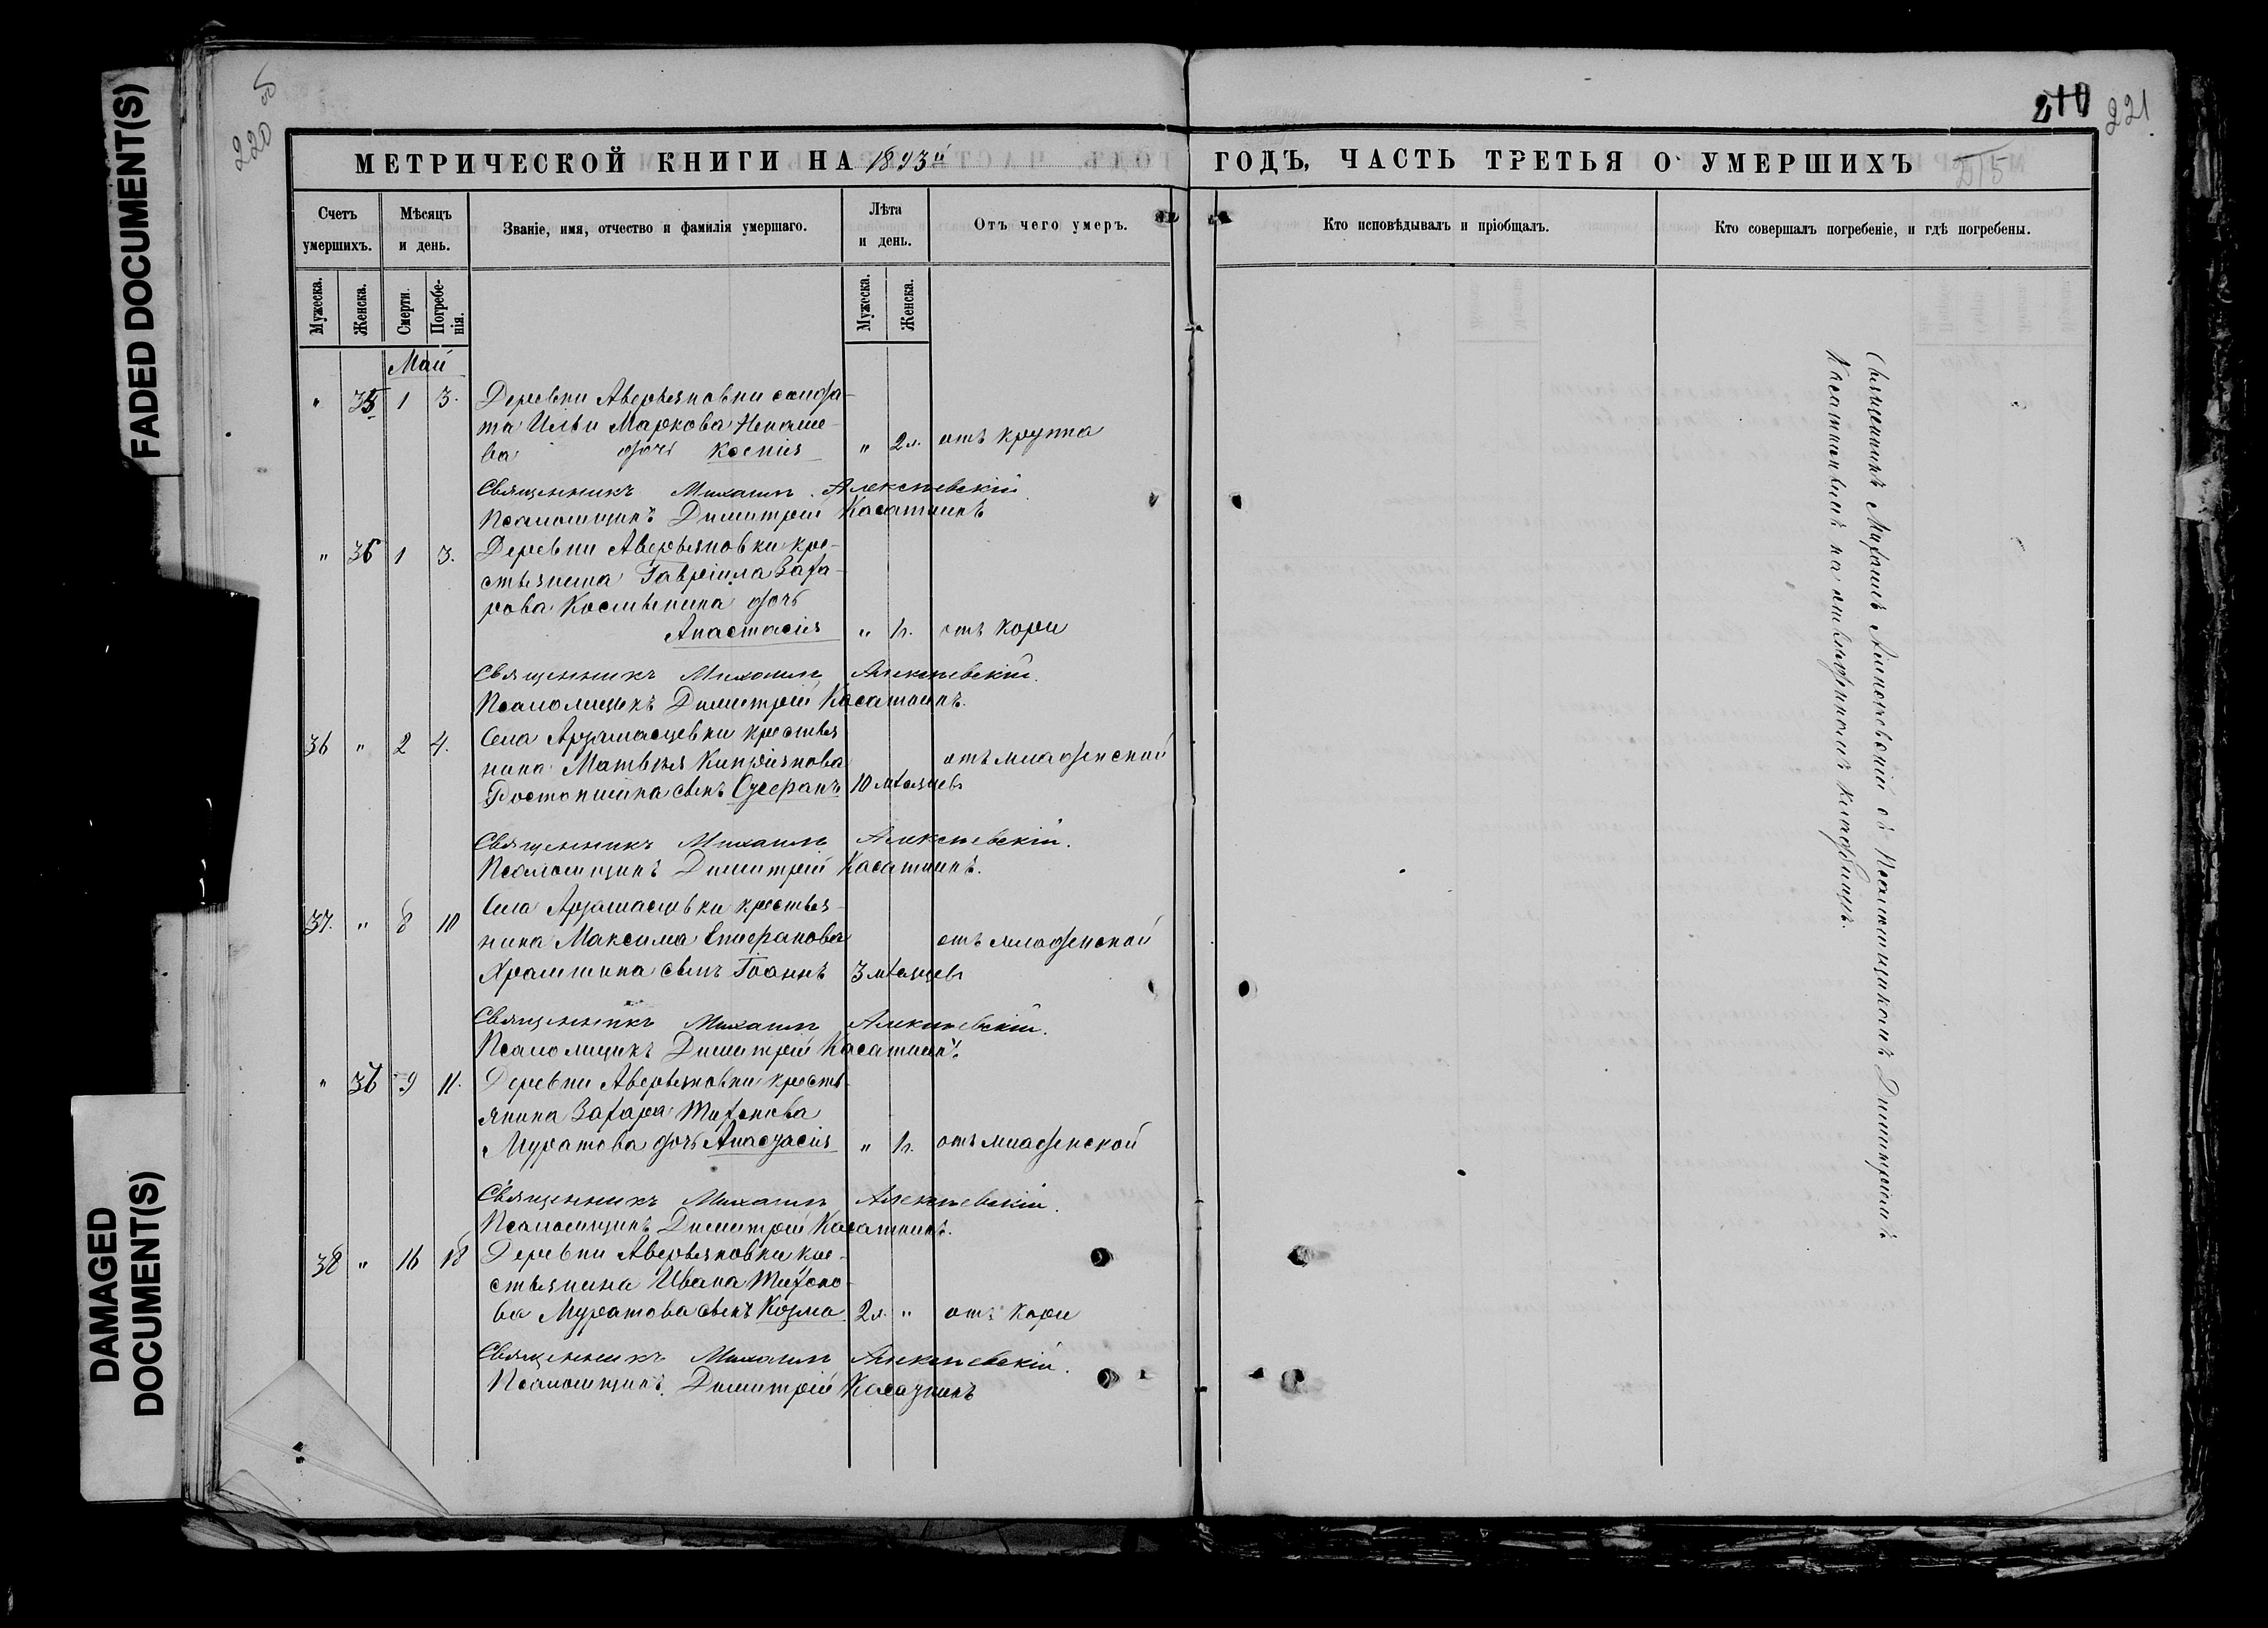 FADED DOCUMENT(S)
DAMAGED
DOCUMENT(S)
220
221
МЕТРИЧЕСКОЙ КНИГИ НА 1893й
ГОДЪ, ЧАСТЬ ТРЕТЬЯ О УМЕРШИХЪ
Счетъ умершихъ.
Мѣсяцъ и день.
Званіе, имя, отчество и фамилія умершаго.
Лѣта и день.
Отъ чего умеръ.
Кто исповѣдывалъ и пріобщалъ.
Кто совершалъ погребеніе, и гдѣ погребены.
Мужеска.
Женска.
Смерти.
Погребе-
нія.
Мужеска.
Женска.
Май
" 35 1 3. Деревни Аверьяновки солда-
та Ильи Маркова
ва дочь Ксенія " 2 л. отъ крупа
Священникъ Михаилъ Алексѣевскій
Псаломщикъ Димитрій Касаткинъ
" 36 1 3. Деревни Аверьяновки кре-
стьянина Гавріила Заха-
рова дочь
Анастасія " 1 г. отъ кори
Священникъ Михаилъ Алексѣевскій.
Псаломщикъ Димитрій Касаткинъ.
36 " 2 4. Села Арзамасцевки крестья
нина Матвѣя Кипріянова отъ младенской
сынъ 10 мѣсяцевъ
Священникъ Михаилъ Алексѣевскій.
Псаломщикъ Димитрій Касаткинъ.
37. " 8 10 Села Арзамасцовки крестья-
нина Максима Стефанова отъ младенской
Храмшина сынъ Іоаннъ 3 мѣсяцевъ
Священникъ Михаилъ Алексѣевскій.
Псаломщикъ Димитрій Касаткинъ.
" 9 11. Деревни Аверьяновки кресть-
янина Захара Тихонова
Муратова дочь Анастасія " 1 г. отъ младенской
Священникъ Михаилъ Алексѣевскій.
Псаломщикъ Димитрій Касаткинъ.
38 " 16 18 Деревни Аверьяновки кре-
стьянина Ивана Тихоно-
ва Муратова сынъ Козма 2 л. " отъ кори
Священникъ Михаилъ Алексѣевскій.
Псаломщикъ Димитрій Касаткинъ
Священникъ Михаилъ Алексѣевскій съ Псаломщикомъ Димитріемъ
Касаткинымъ на кладбищѣ.